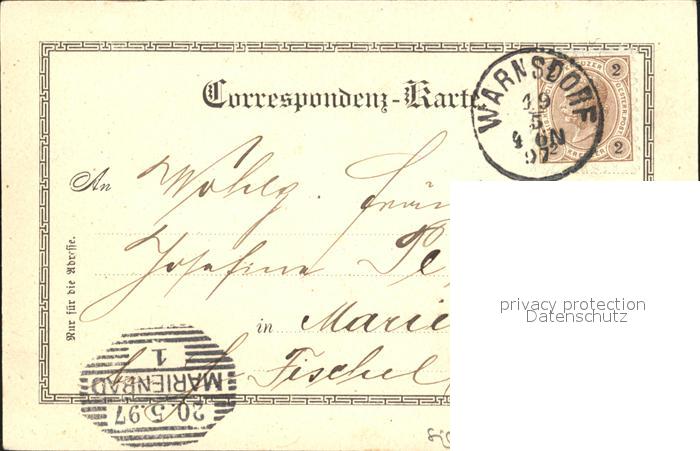 Correspondenz-Karte
WARNSDORF
19
5
97
KREUZER
2
2
An Wohlg. Fräu
Josefine Pe
in Marie
Fischel
Nur für die Adresse.
MARIENBAD
1
20.5.97
privacy protection
Datenschutz